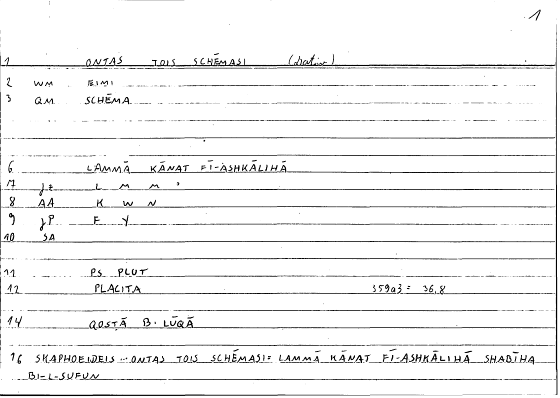 1
1 ONTAS TOIS SCHĒMASI (dative)
2 WM EIMI
3 QM SCHĒMA
6 LAMMĀ KĀNAT FĪ-ASHKĀLIHĀ
7 jz L M M '
8 AA K W N
9 jP F Y
10 SA
11 PS. PLUT
12 PLACITA 359a3 = 36.8
14 QOSṬĀ B. LŪQĀ
16 SKAPHOEIDEIS ... ONTAS TOIS SCHĒMASI = LAMMĀ KĀNAT FĪ-ASHKĀLIHĀ SHABĪHA
BI-L-SUFUN